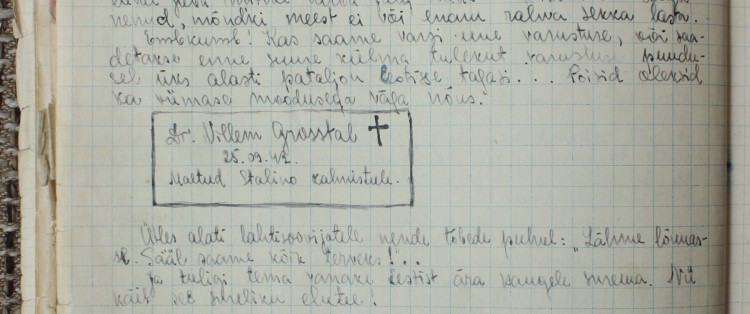 nenud, mõndki meest ei või enam rahva sekka lasta.
Kas saame varsi uue varustuse, või saa-
detakse enne suure külma tulekut varustuse puudu-
sel üks alasti pataljon Eestisse tagasi... Poisid oleksid
ka viimase moodusega väga nõus.
Dr. Villem Grosstal †
25.09.42.
Maetud Stalino kalmistule.
Ütles alati lahtisoovijatele nende tõbede puhul: „Lähme lõunas-
se. Sääl saame kõik terveks!"..
Ja tuligi tema vanake Eestist ära kaugele surema. Nii
käis see elutee!